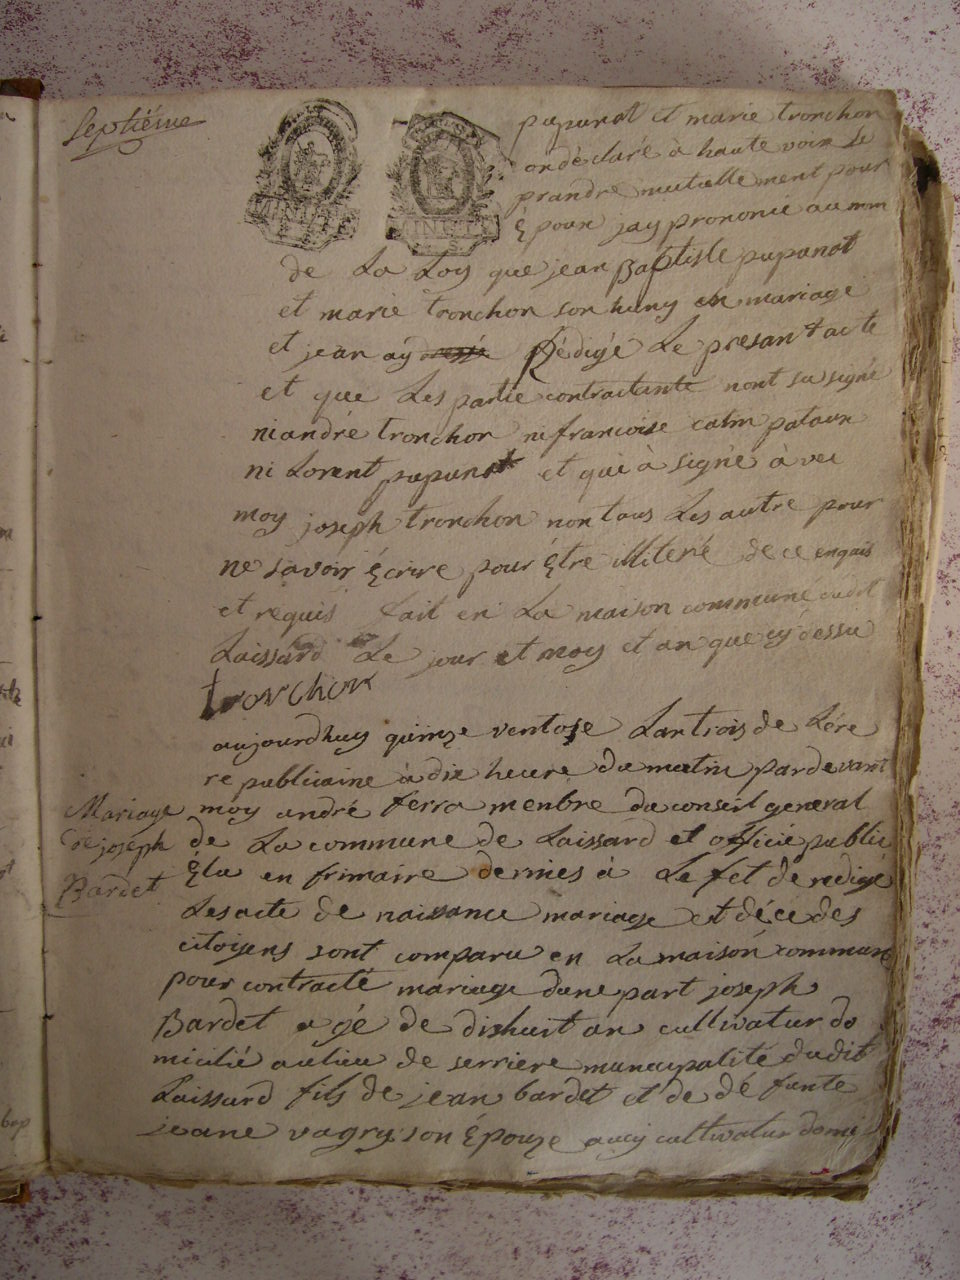 Septiéme
papanot et marie tronchon
on déclaré à haute voix se
prandre mutuelle ment pour
Époux jay prononcé au nom
de La Loy que jean Baptiste papanot
et marie tronchon son huny en mariage
et jean ay Rédigé Le presant acte
et que Les partie contractante nont su signé
ni andré tronchon ni francoise
ni Lorent papanot et qui à signé à vec
moy joseph tronchon non tous Les autre pour
ne savoir Écrire pour Étre illiteré de ce enquis
et requis fait en La maison commune dudit
Laissard Le jour et moy et an que cy dessu
tronchon
aujourdhuy quinze ventose Lan trois de Lére
republicaine à dix heure du matin pardevant
moy andré ferra menbre du conseil general
de La commune de Laissard et officié public
Élu en frimaire dernies à Le fet de redigé
Les acte de naissance mariage et déce des
citoyens sont comparu en La maison commune
pour contracté mariage dune part joseph
Bardet agé de dishuit an cultivatur do
micilié au lieu de serriere municipalité dudit
Laissard fils de jean bardet et de dé funte
jeane vagry son Épouze aucy cultivatur domi
Mariage
de joseph
Bardet